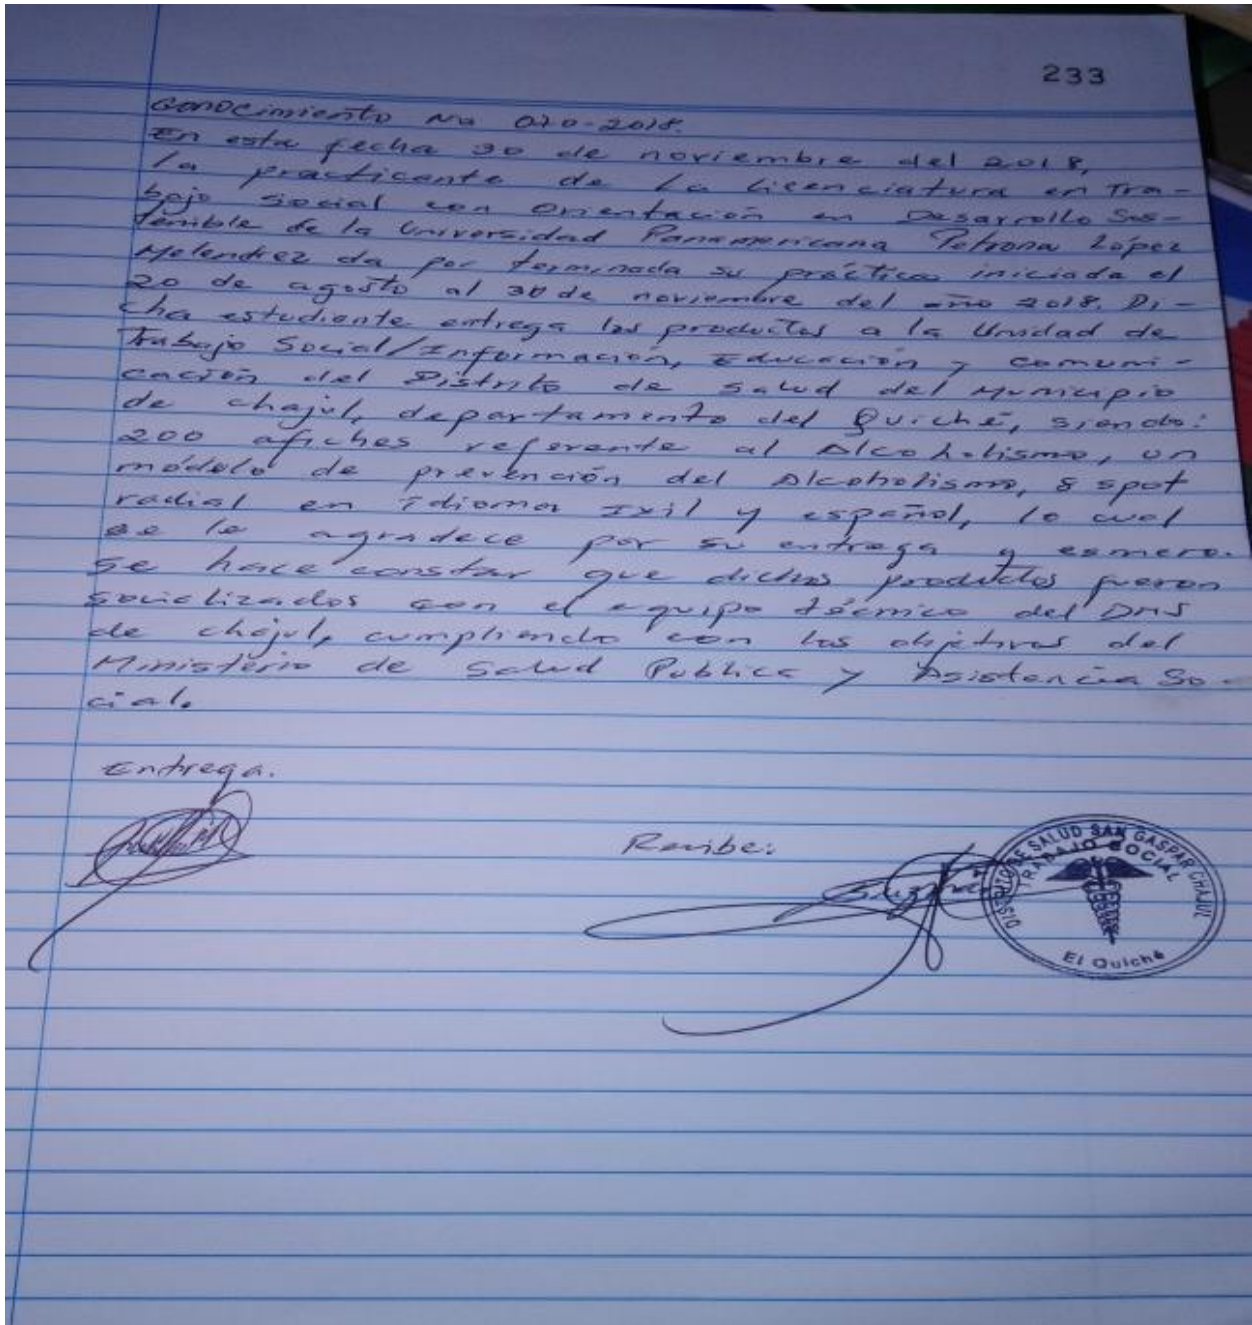 233
Conocimiento No 020-2018.
En esta fecha 30 de noviembre del 2018,
la practicante de la licenciatura en Tra-
bajo social con Orientación en Desarrollo Sos-
tenible de la Universidad Panamericana Petrona López
Melendrez da por terminada su práctica iniciada el
20 de agosto al 30 de noviembre del año 2018. Di-
cha estudiante entrega los productos a la Unidad de
Trabajo Social/Información, Educación y comuni-
cación del Distrito de Salud del Municipio
de chajul, departamento del Quiché, siendo:
200 afiches referente al Alcoholismo, un
módelo de prevención del Alcoholismo, 8 spot
radial en Idioma Ixil y español, lo cual
se le agradece por su entrega y esmero.
Se hace constar que dichos productos fueron
socializados con el equipo técnico del DMS
de chajul, cumpliendo con los objetivos del
Ministerio de Salud Publica y Asistencia So-
cial.
Entrega.
Recibe:
DISTRITO DE SALUD SAN GASPAR CHAJUL
TRABAJO SOCIAL
El Quiché